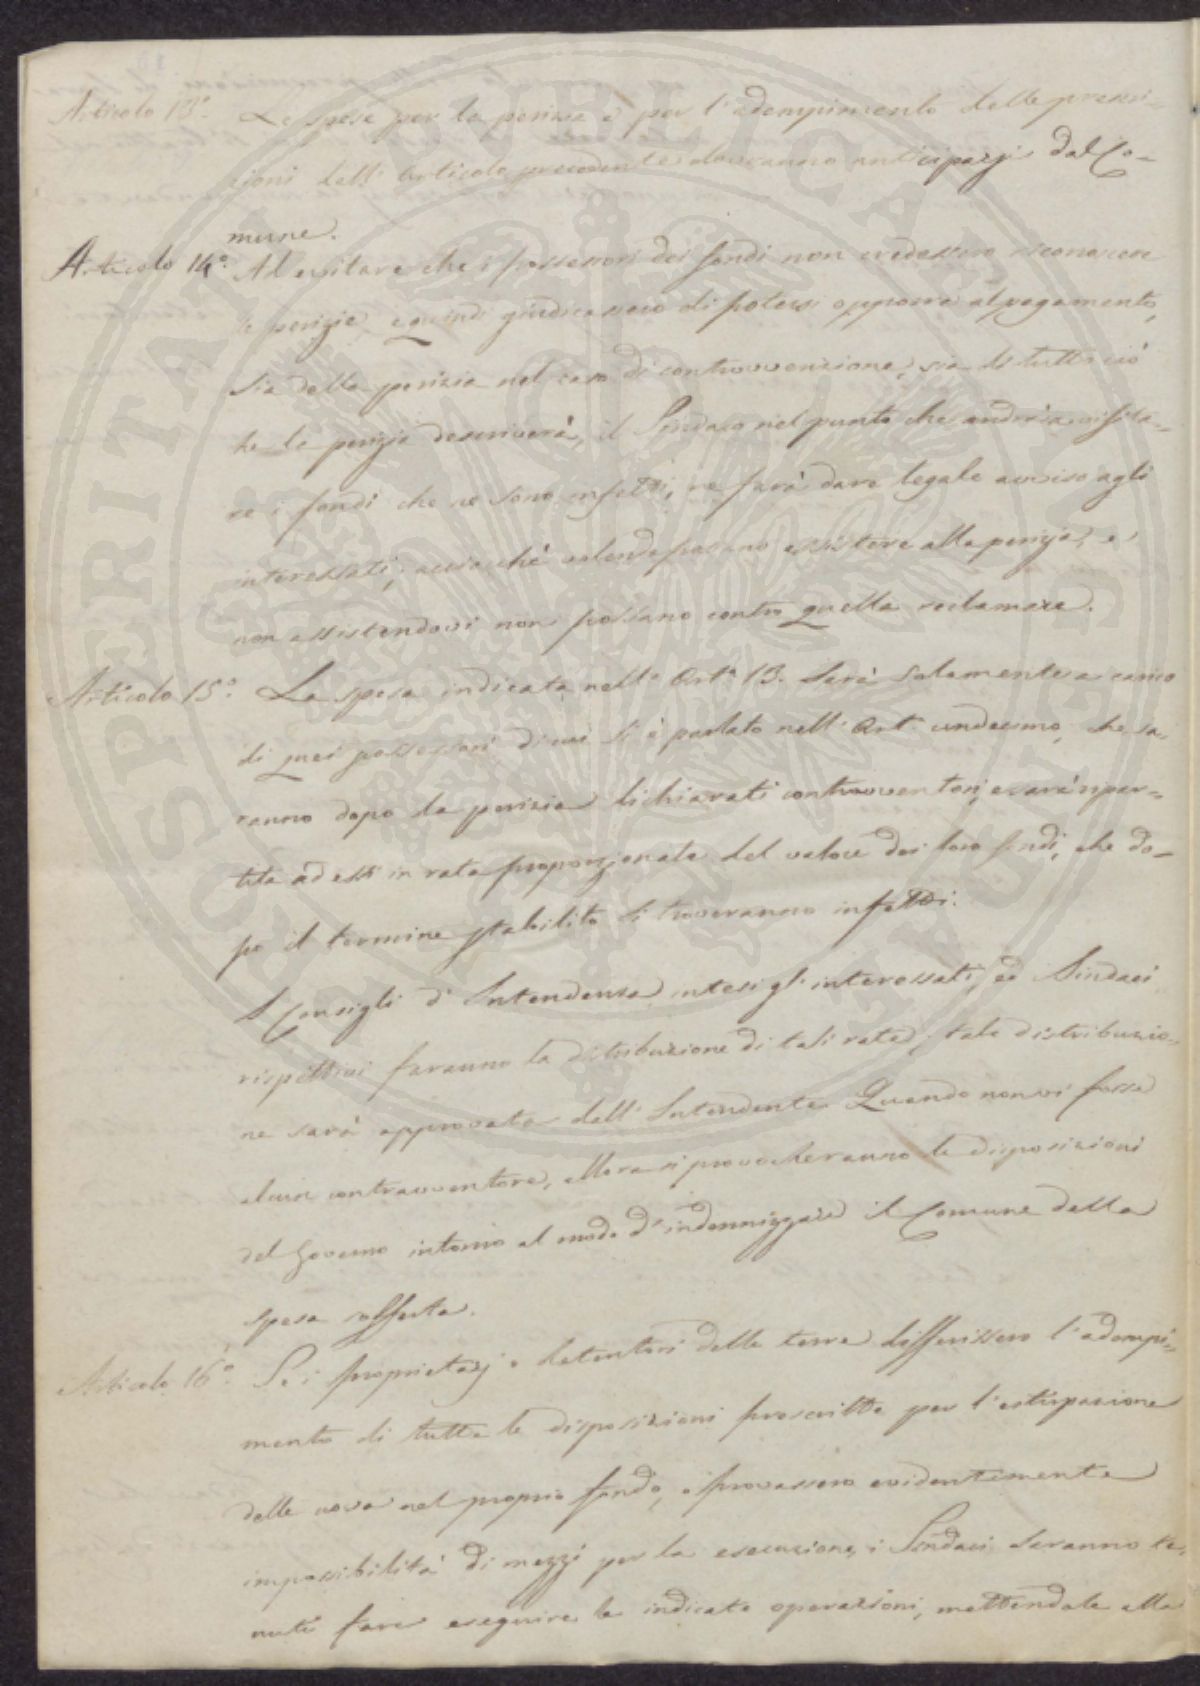 Articolo 13.° Le spese per la perizia e per l'adempimento delle prescri-
zioni dell'articolo precedente dovranno anticiparsi dal Co-
mune.
Articolo 14.° Ad evitare che i possessori dei fondi non credessero riconoscere
le perizie, e quindi giudicassero di potersi opporre al pagamento,
sia della perizia nel caso di contravvenzione, sia di tutto ciò
che la perizia descriverà, il Sindaco nel punto che andrà a visita-
re i fondi che ne sono infetti, ne farà dare legale avviso agli
interessati, acciocchè volendo possano assistere alla perizia, e
non assistendovi non possano contro quella reclamare.
Articolo 15.° La spesa indicata nell'Art.° 13. sarà solamente a carico
di quei possessori di cui si è parlato nell'Art. undecimo, che sa-
ranno dopo la perizia dichiarati contravventori, e sarà ripar-
tita ad essi in rata proporzionata del valore dei loro fondi, che do-
po il termine stabilito si troveranno infetti.
I Consigli d'Intendenza, intesi gl'interessati, ed i Sindaci
rispettivi faranno la distribuzione di tali rate; tale distribuzio-
ne sarà approvata dall'Intendente. Quando non vi fosse
alcun contravventore, allora si provocheranno le disposizioni
del Governo intorno al modo d'indennizzare il Comune della
spesa sofferta.
Articolo 16.° Se i proprietarj o detentori delle terre differissero l'adempi-
mento di tutte le disposizioni prescritte per l'estirpazione
delle uova nel proprio fondo, o provassero evidentemente
impossibilità di mezzi per la esecuzione, i Sindaci saranno te-
nuti fare eseguire le indicate operazioni, mettendole alla
PUBLICAE
PROSPERITATI